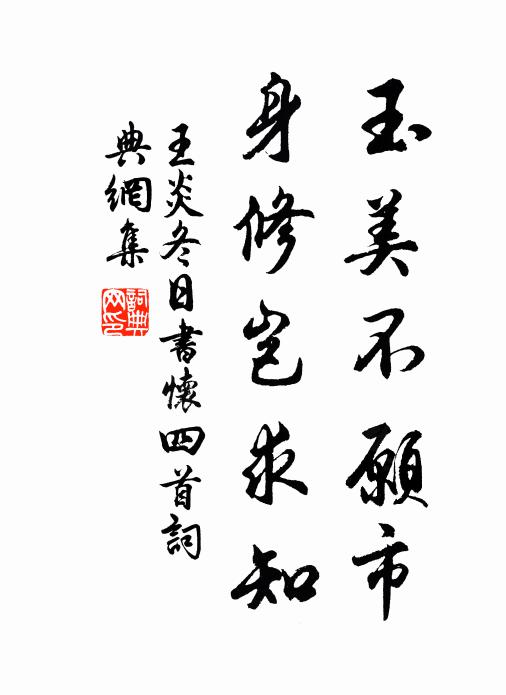 玉美不願市
身修岂求知
王炎冬日書懷四首詞
典網集
詞典網印